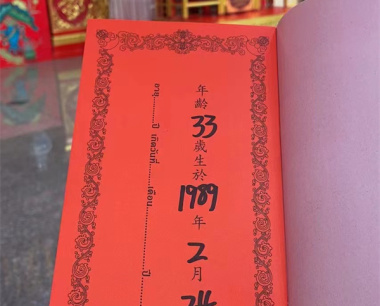 年齡33歲生於1989年2月24
อายุ..........ปี เกิดวันที่..........เดือน....................ปี